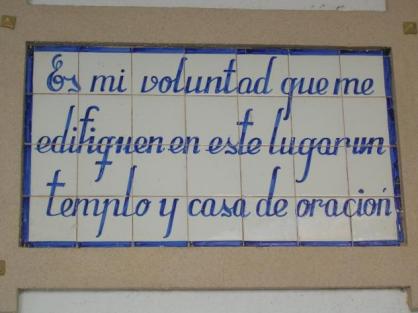 Es mi voluntad que me
edifiquen en este lugar un
templo y casa de oración